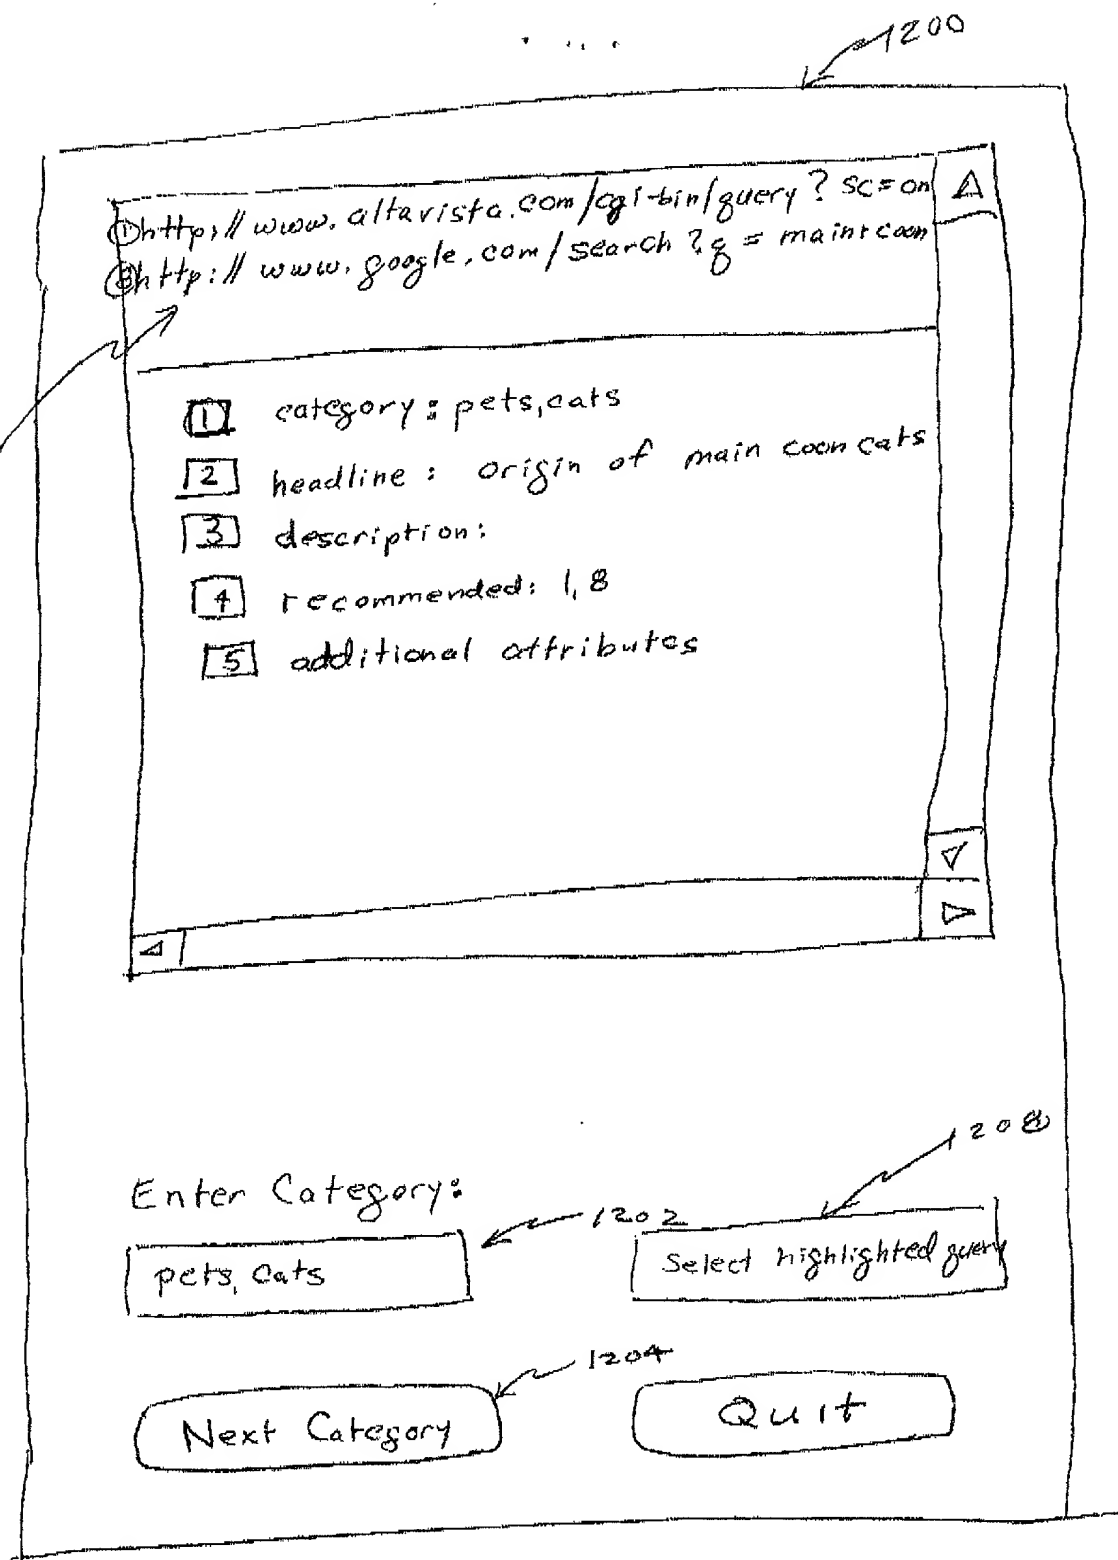 1200
① http://www.altavista.com/cgi-bin/query? sc=on
② http://www.google.com/search?q = main+coon
1 category: pets,cats
2 headline: origin of main coon cats
3 description:
4 recommended: 1,8
5 additional attributes
1208
Enter Category:
1202
pets, cats
Select highlighted query
1204
Next Category
Quit